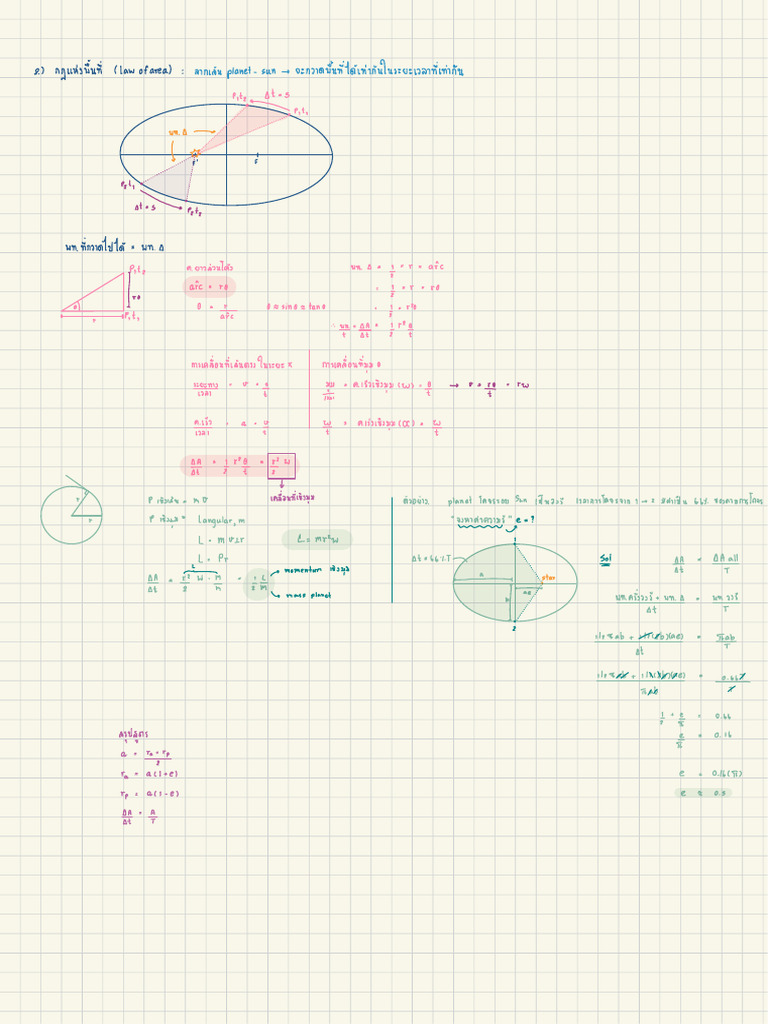 2.) กฎแห่งพื้นที่ (law of area) : ลากเส้น planet - sun → จะกวาดพื้นที่ได้เท่ากันในระยะเวลาที่เท่ากัน
P₁t₂ Δt = s
P₁t₁
พท. Δ
P₂t₁
Δt = s
P₂t₂
พท. ที่กวาดไปได้ = พท. Δ
P₁t₂
rθ
θ
r
P₁t₁
ค.ยาวส่วนโค้ง
arc = rθ
θ = r/arc
θ ≈ sinθ ≈ tanθ
พท. Δ = 1/2 × r × arc
= 1/2 × r × rθ
= 1/2 × r²θ
∴ พท./t = ΔA/Δt = 1/2 r² θ/t
การเคลื่อนที่เส้นตรง ในระยะ x
ระยะทาง/เวลา = v = s/t
ค.เร็ว/เวลา = a = v/t
การเคลื่อนที่มุม θ
มุม/เวลา = ค.เร็วเชิงมุม (ω) = θ/t → v = rθ/t = rω
ω/t = ค.เร่งเชิงมุม (α) = ω/t
ΔA/Δt = 1/2 r² θ/t = r²/2 ω
เคลื่อนที่เชิงมุม
r
r
P เชิงเส้น = m v
P เชิงมุม = Langular, m
L = m v⊥r
L = Pr
L = mr²ω
L
ΔA/Δt = r²/2 ω · m/m = 1/2 L/m
momentum เชิงมุม
mass planet
ตัวอย่าง. planet โคจรรอบ Sun เป็นวงรี
66%
"จงหาค่าความรี" e = ?
Δt = 66% T
1
a
b
ae
star
2
Sol
ΔA/Δt = ΔA all/T
พท.ครึ่งวงรี + พท. Δ/Δt = พท. วงรี/T
1/2 πab + 1/2(2b)(ae)/Δt = πab/T
1/2 πab + 1/2(2b)(ae)/πab = 0.66T/T
1/2 + e/π = 0.66
e/π = 0.16
e = 0.16(π)
e ≈ 0.5
สรุปสูตร
a = ra + rp/2
ra = a(1+e)
rp = a(1-e)
ΔA/Δt = A/T